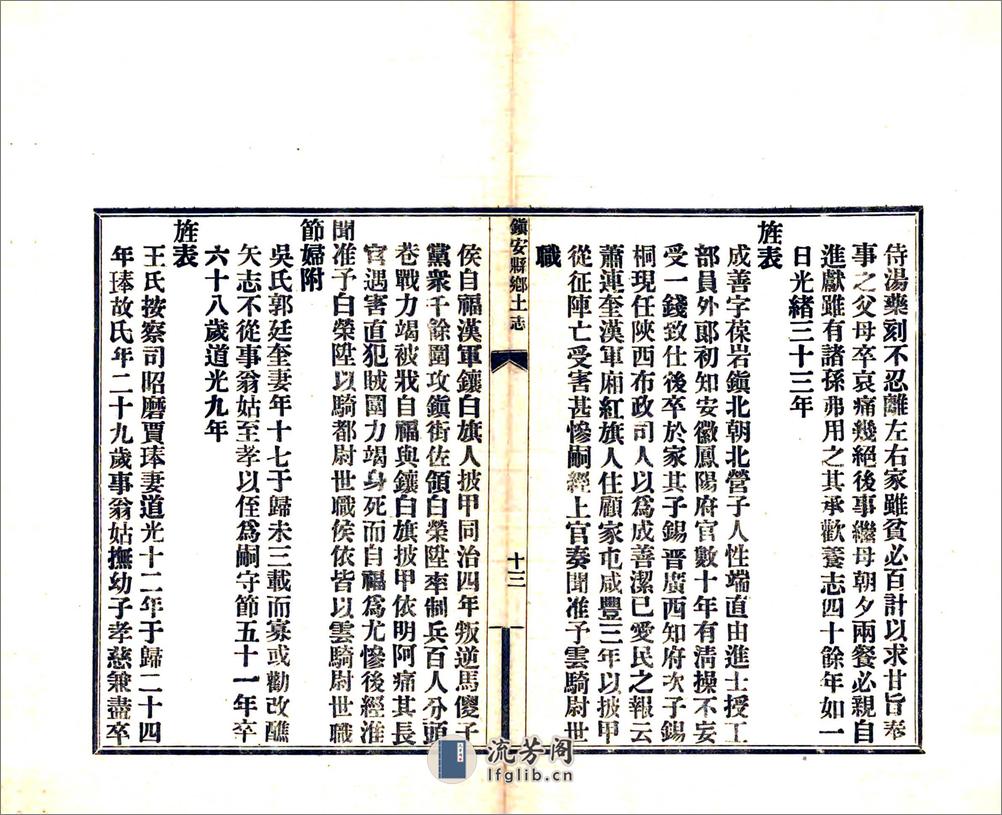 侍湯藥刻不忍離左右家雖貧必百計以求甘旨奉
事之父母卒哀痛幾絕後事繼母朝夕兩餐必親自
進獻雖有諸孫弗用之其承歡養志四十餘年如一
日光緒三十三年
旌表
成善字葆岩鎭北朝北營子人性端直由進士授工
部員外郎初知安徽鳳陽府官數十年有淸操不妄
受一錢致仕後卒於家其子錫晋廣西知府次子錫
桐現任陝西布政司人以爲成善潔已愛民之報云
蕭連奎漢軍廂紅旗人住顧家屯咸豐三年以披甲
從征陣亡受害甚慘嗣經上官奏聞准予雲騎尉世
職
鎭安縣鄉土志
十三
侯自福漢軍鑲白旗人披甲同治四年叛逆馬傻子
黨衆千餘圍攻鎭街佐領白榮陞率制兵百人分頭
巷戰力竭被戕自福與鑲白旗披甲依明阿痛其長
官遇害直犯賊圍力竭身死而自福爲尤慘後經准
聞准予白榮陞以騎都尉世職侯依皆以雲騎尉世職
節婦附
吳氏郭廷奎妻年十七于歸未三載而寡或勸改醮
矢志不從事翁姑至孝以侄爲嗣守節五十一年卒
六十八歲道光九年
旌表
王氏按察司昭磨賈琫妻道光十二年于歸二十四
年琫故氏年二十九歲事翁姑撫幼子孝慈兼盡卒
流芳阁
lfglib.cn